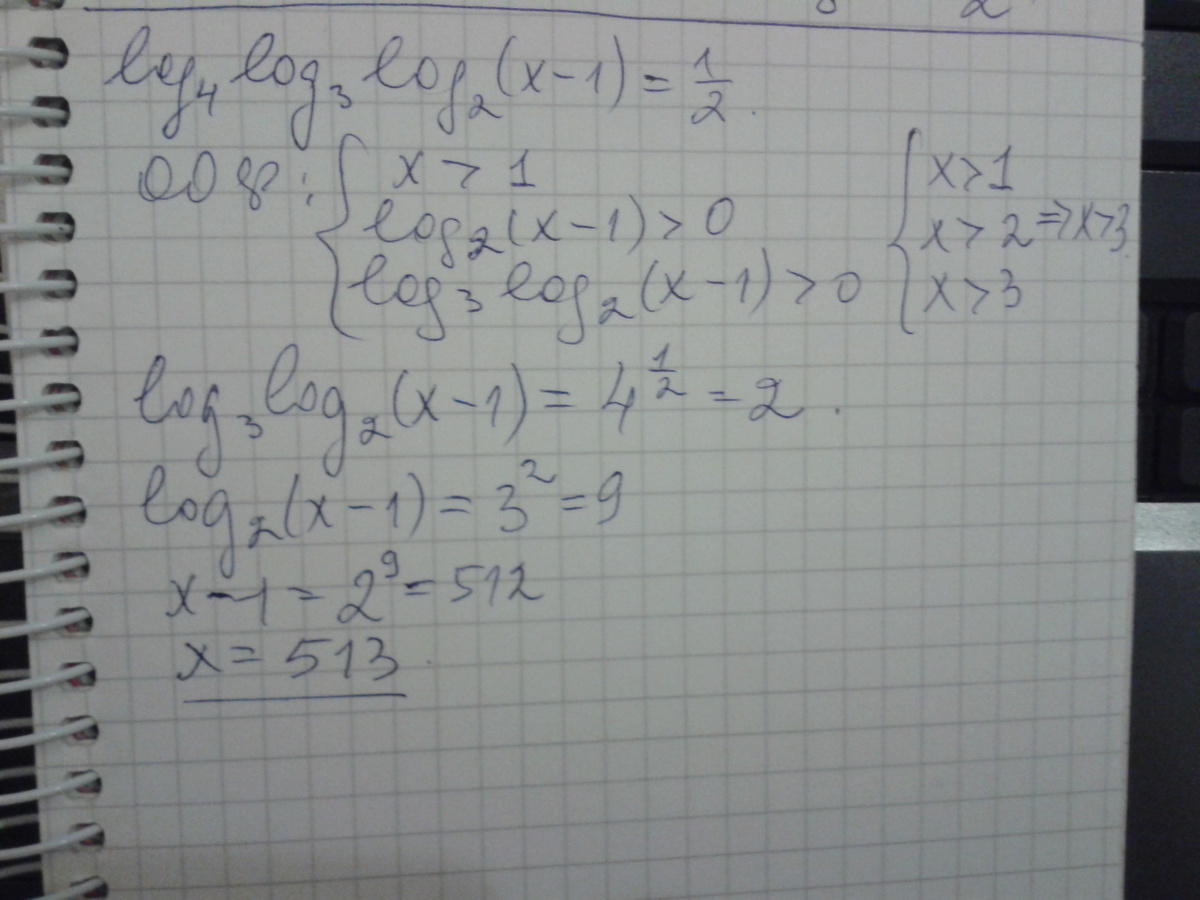 log₄ log₃ log₂(x-1) = 1/2.
ООФ: { x > 1 { x>1
log₂(x-1) > 0 x>2 => x>3.
log₃ log₂(x-1) > 0 x>3
log₃ log₂(x-1) = 4^(1/2) = 2.
log₂(x-1) = 3² = 9
x-1 = 2⁹ = 512
x = 513.